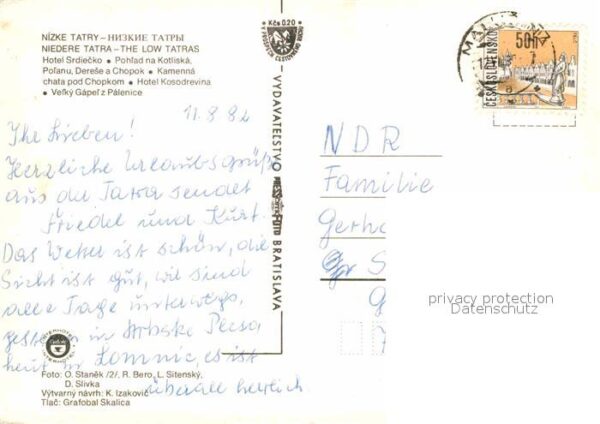 NÍZKE TATRY – НИЗКИЕ ТАТРЫ
NIEDERE TATRA – THE LOW TATRAS
Hotel Srdiečko • Pohľad na Kotliská,
Poľanu, Dereše a Chopok • Kamenná
chata pod Chopkom • Hotel Kosodrevina
• Veľký Gápeľ z Pálenice
Kčs 0,20
11.8.82
Ihr Lieben!
Herzliche Urlaubsgrüße
aus der Tatra sendet
Friedel und Kurt.
Das Wetter ist schön, die
Sicht ist gut, wir sind
alle Tage unterwegs,
gestern in Strbske Pleso
heut in Lomnic, es ist
überall herrlich
Foto: O. Staněk /2/, R. Bero, L. Sitenský,
D. Slivka
Výtvarný návrh: K. Izakovič
Tlač: Grafobal Skalica
VYDAVATEĽSTVO
BRATISLAVA
ČESKOSLOVENSKO
50h
NDR
Familie
Gerha
S
G
7
privacy protection
Datenschutz